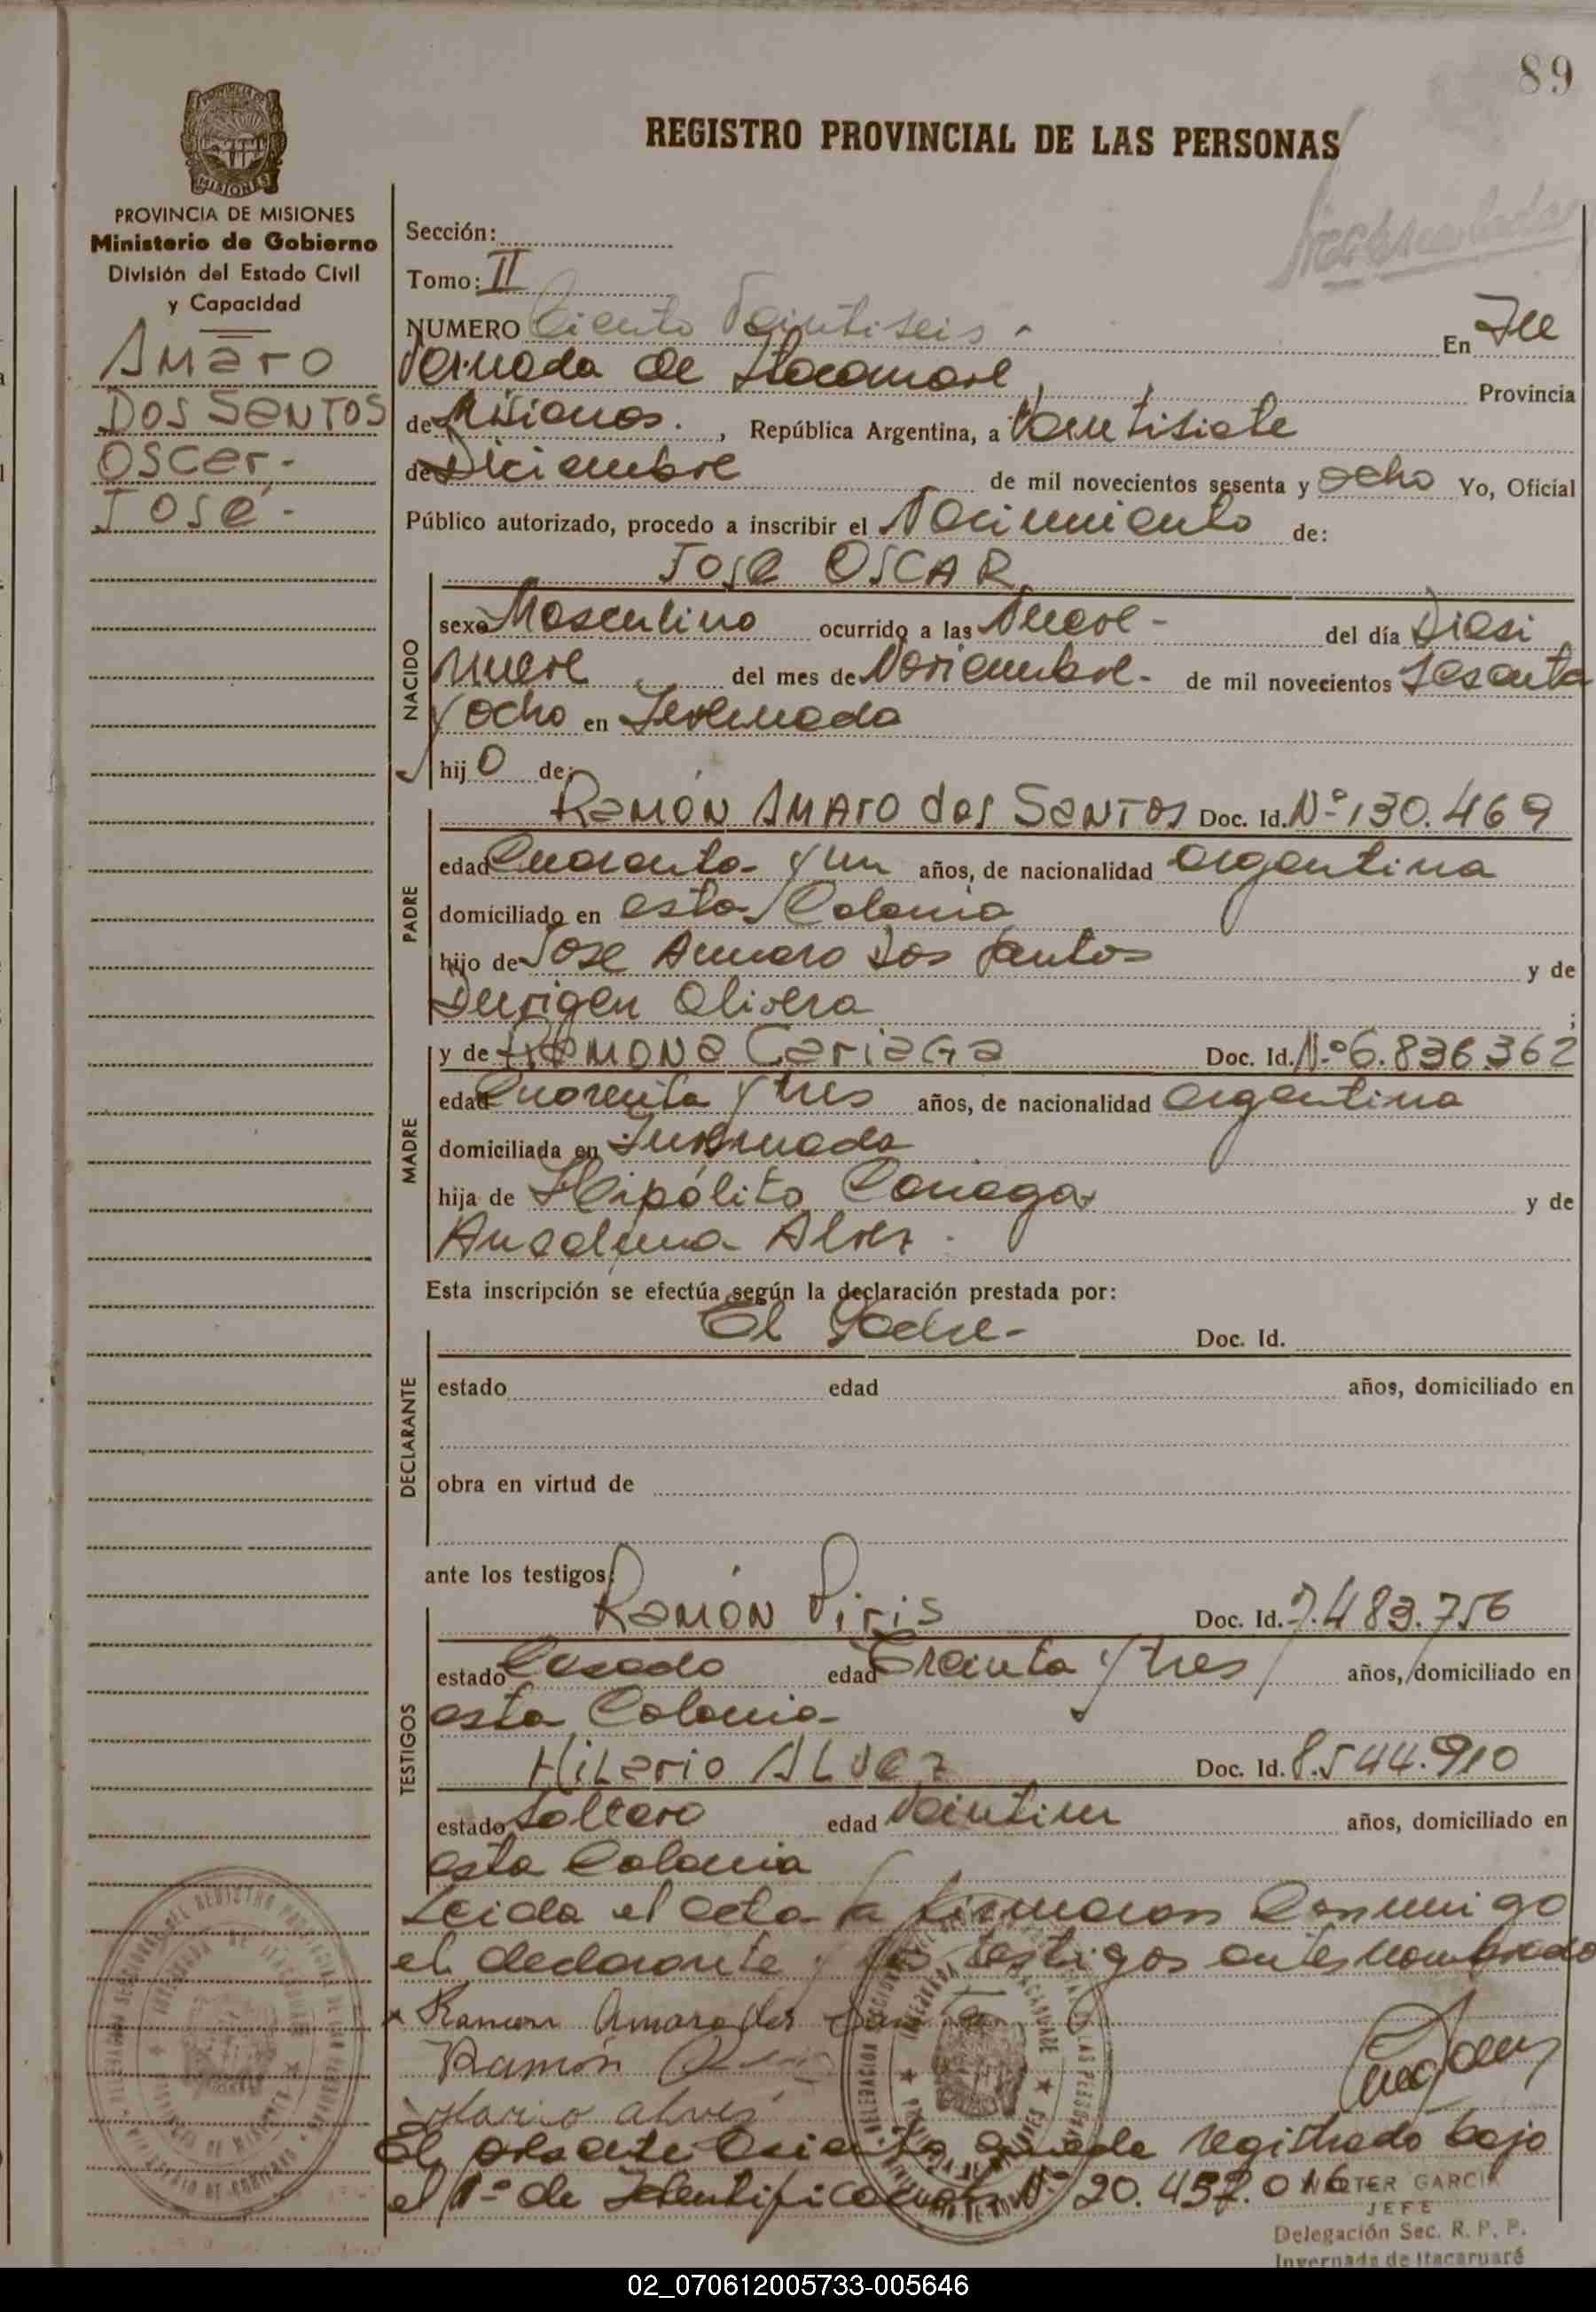 89
REGISTRO PROVINCIAL DE LAS PERSONAS
PROVINCIA DE MISIONES
Ministerio de Gobierno
División del Estado Civil
y Capacidad
Amaro
Dos Santos
Oscar-
José-
Sección:
Tomo: II
NUMERO Ciento Veintiseis - En
de Provincia
de Misiones. , República Argentina, a Veintisiete
de Diciembre de mil novecientos sesenta y ocho Yo, Oficial
Público autorizado, procedo a inscribir el Nacimiento de:
JOSE OSCAR
NACIDO
sexo Masculino ocurrido a las Nueve - del día Diesi
nueve del mes de Noviembre - de mil novecientos Sesenta
y ocho en Invernada
hijo de:
PADRE
Ramón Amaro dos Santos Doc. Id. Nº 130.469
edad Cuarenta y un años, de nacionalidad argentina
domiciliado en esta Colonia
hijo de Jose Amaro Dos Santos y de
Olivera ;
MADRE
y de Ramona Cariaga Doc. Id. Nº 6.836362
edad Cuarenta y tres años, de nacionalidad argentina
domiciliada en Invernada
hija de Hipólito Cariaga y de
Anselma Alvez.
Esta inscripción se efectúa según la declaración prestada por:
El Padre- Doc. Id.
DECLARANTE
estado edad años, domiciliado en
obra en virtud de
ante los testigos:
TESTIGOS
Ramón Piris Doc. Id. 7.483.756
estado Casado edad Treinta y tres años, domiciliado en
esta Colonia
Hilario Alvez Doc. Id. 8.544.910
estado Soltero edad Veintiun años, domiciliado en
esta Colonia
Leida el acta la firmaron Conmigo
el declarante y los testigos antes nombrado
Ramon Amaro dos
Ramón
alves
El presente asiento queda registrado bajo
el Nº de Identificación Nº 20.457.016
GARCIA
JEFE
Delegación Sec. R. P. P.
Invernada de Itacaruaré
02_070612005733-005646